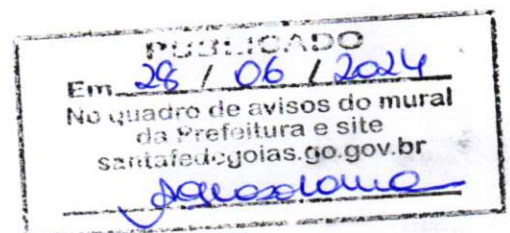 PUBLICADO
Em 28 / 06 / 2024
No quadro de avisos do mural
da Prefeitura e site
santafedegoias.go.gov.br